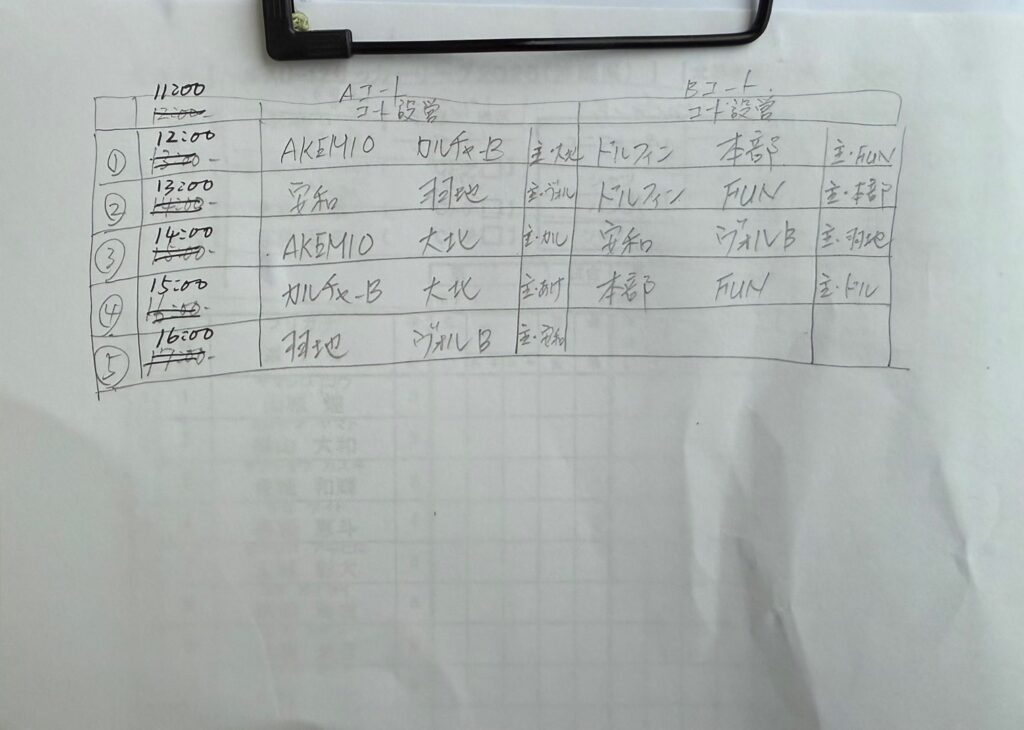 11:00 Aコート Bコート
12:00 コート設営 コート設営
12:00
① 13:00- AKEMIO カルチャーB 主・大北 ドルフィン 本部 主・FUN
13:00
② 14:00- 安和 羽地 主・ヴォル ドルフィン FUN 主・本部
14:00
③ 15:00- AKEMIO 大北 主・カル 安和 ヴォルB 主・羽地
15:00
④ 16:00- カルチャーB 大北 主・あけ 本部 FUN 主・ドル
16:00
⑤ 17:00- 羽地 ヴォルB 主・安和